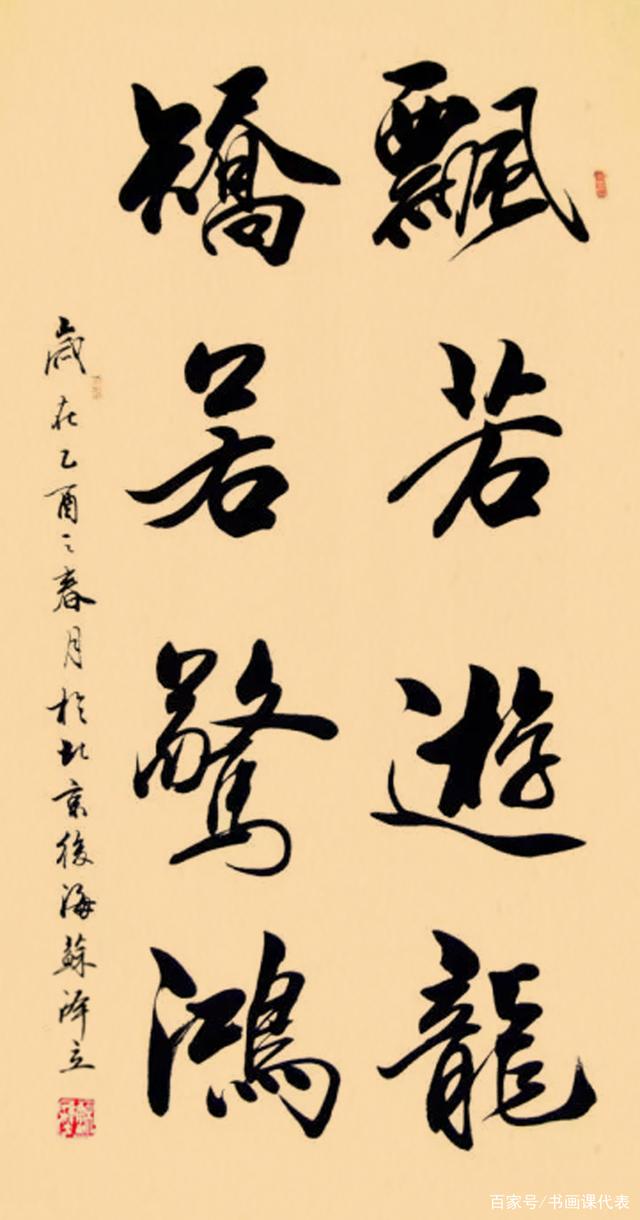 飄若遊龍
矯若驚鴻
歲在乙酉之春月於北京後海蘇澤立
百家号/书画课代表